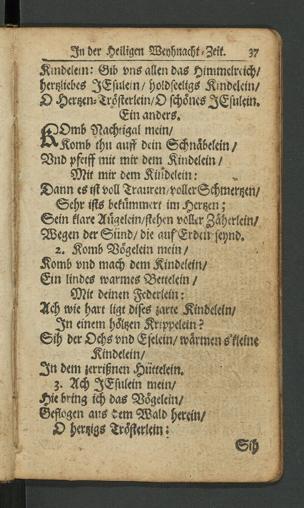 In der Heiligen Weyhnacht-Zeit. 37
Kindelein: Gib vns allen das Himmelreich/
hertzliebes JEsulein/ holdseeligs Kindelein/
O Hertzen-Trösterlein/ O schönes JEsulein.
Ein anders.
KOmb Nachtigal mein/
Komb thu auff dein Schnäbelein/
Vnd pfeiff mit mir dem Kindelein/
Mit mir dem Kindelein:
Dann es ist voll Trauren/ voller Schmertzen/
Sehr ists bekümmert im Hertzen;
Sein klare Äugelein/ stehen voller Zäherlein/
Wegen der Sünd/ die auf Erden seynd.
2. Komb Vögelein mein/
Komb vnd mach dem Kindelein/
Ein lindes warmes Bettelein/
Mit deinen Federlein:
Ach wie hart ligt dises zarte Kindelein/
In einem höltzen Krippelein?
Sih der Ochs vnd Eselein/ wärmen s'kleine
Kindelein/
In dem zerrißnen Hüttelein.
3. Ach JEsulein mein/
Hie bring ich das Vögelein/
Geflogen aus dem Wald herein/
O hertzigs Trösterlein:
Sih